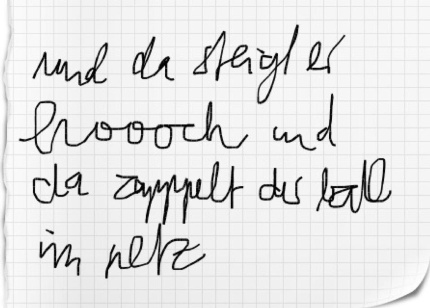 und da steigt er
hroooch und
da zappelt der ball
im netz